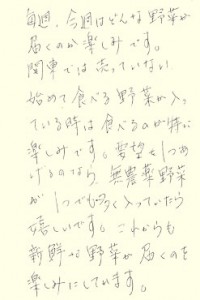 毎週、今週はどんな野菜が
届くのか楽しみです。
関東では売っていない
始めて食べる野菜が入っ
ている時は食べるのが特に
楽しみです。要望を1つあ
げるのなら、無農薬野菜
が1つでも多く入っていたら
嬉しいです。これからも
新鮮な野菜が届くのを
楽しみにしています。